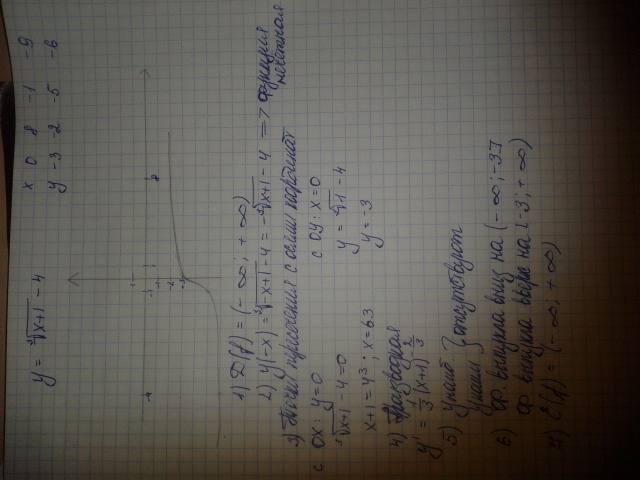 y = ∛x+1 - 4
x 0 8 -1 -9
y -3 -2 -5 -6
1) D(f) = (-∞; +∞)
2) y(-x) = ∛-x+1 - 4 = -∛x+1 - 4 => функция
нечетная
3) Точки пересечения с осями координат
с OX: y=0 с OY: x=0
∛x+1 - 4=0 y = ∛1 - 4
x+1 = 4³; x=63 y = -3
4) Производная
y' = 1/3 (x+1)^2/3
5) yнаиб } отсутствуют
yнаим
6) ф. выпукла вниз на (-∞; -3]
ф выпукла вверх на [-3; +∞)
7) E(f) = (-∞; +∞)